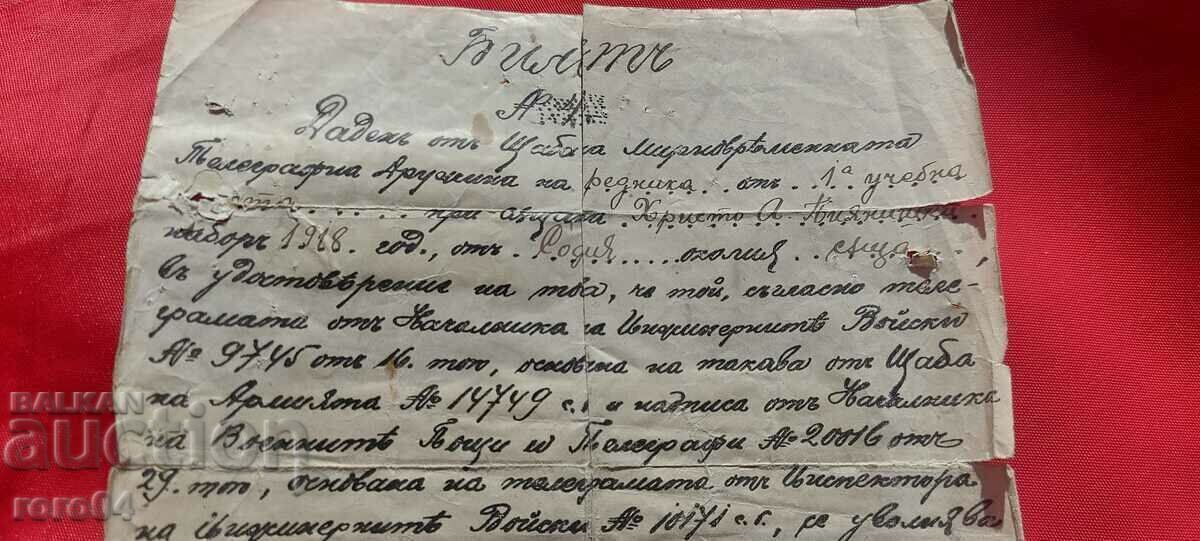 Билетъ
№
Даденъ отъ Щаба на мирновременната
Телеграфна Дружина на редника отъ 1а учебна
при същата Христо А.
наборъ 1918 год., отъ София околия съща,
въ удостовѣрение на това, че той, съгласно теле-
грамата отъ Началника на Инжинернитѣ Войски
№ 9745 отъ 16. того, основана на такава отъ Щаба
на Армията № 14749 с.г. и надписа отъ Началника
на Военнитѣ Пощи и Телеграфи № 20016 отъ
29. того, основана на телеграмата отъ Инспектора
на Инжинернитѣ Войски № 10171 с.г., се уволнява
BALKAN
auction
roro04